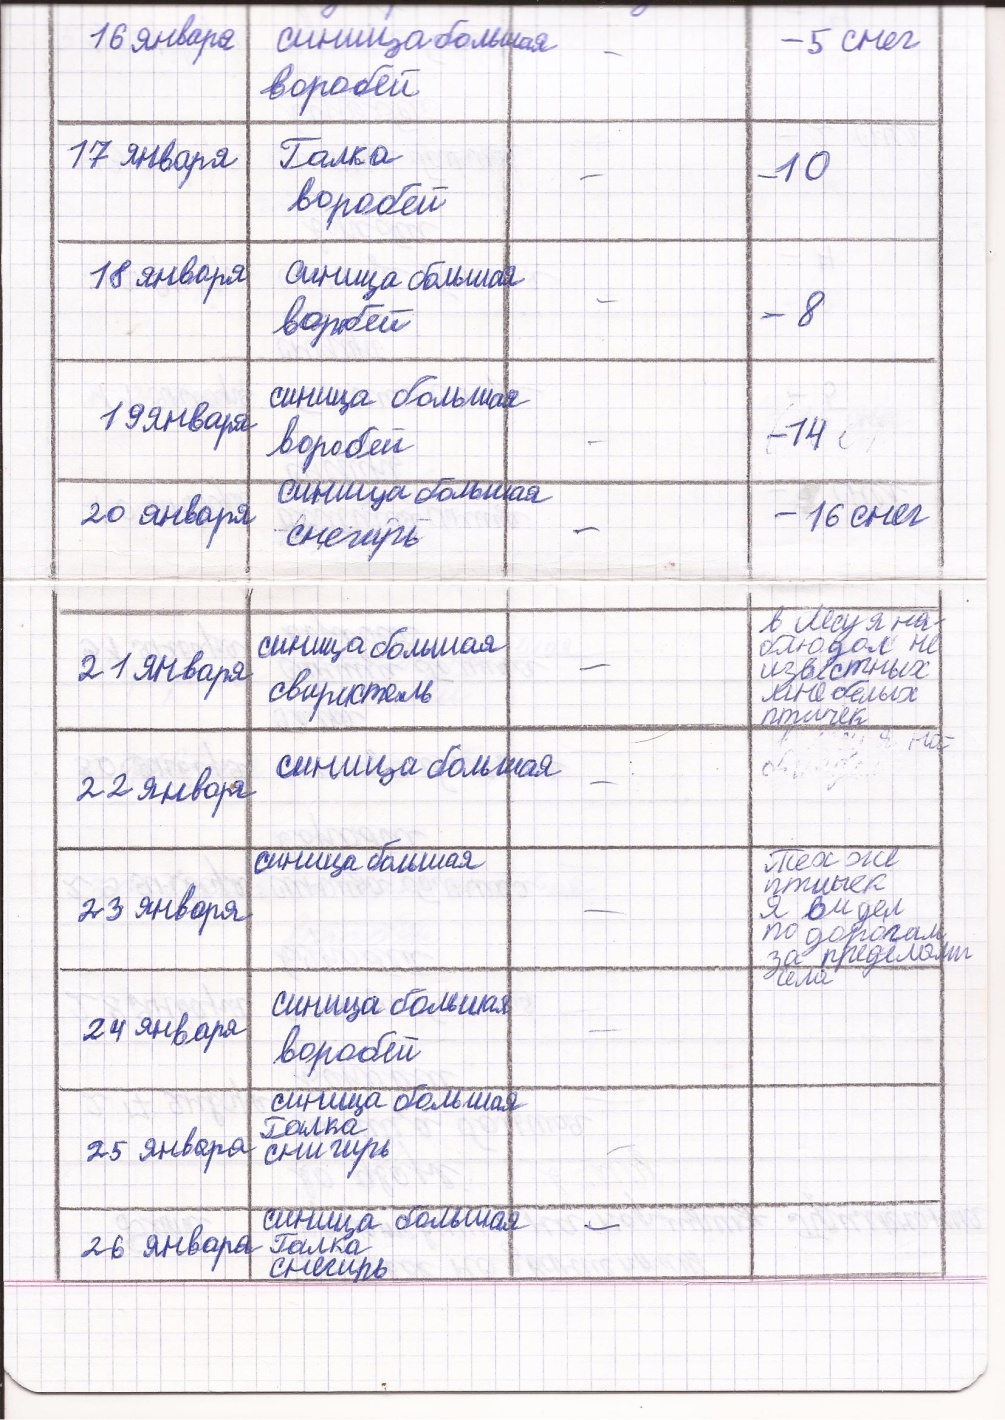 16 января синица большая – -5 снег
воробей
17 января Галка – -10
воробей
18 января синица большая –
воробей - 8
19 января синица большая – -14
воробей
20 января синица большая – - 16 снег
снегирь
21 января синица большая – в лесу я на
свиристель блюдал не
известных
мне белых
птичек
22 января синица большая –
23 января синица большая – Тех же
птичек
я видел
по дорогам
за пределами
села
24 января синица большая –
воробей
25 января синица большая –
Галка
снигирь
26 января синица большая –
Галка
снегирь